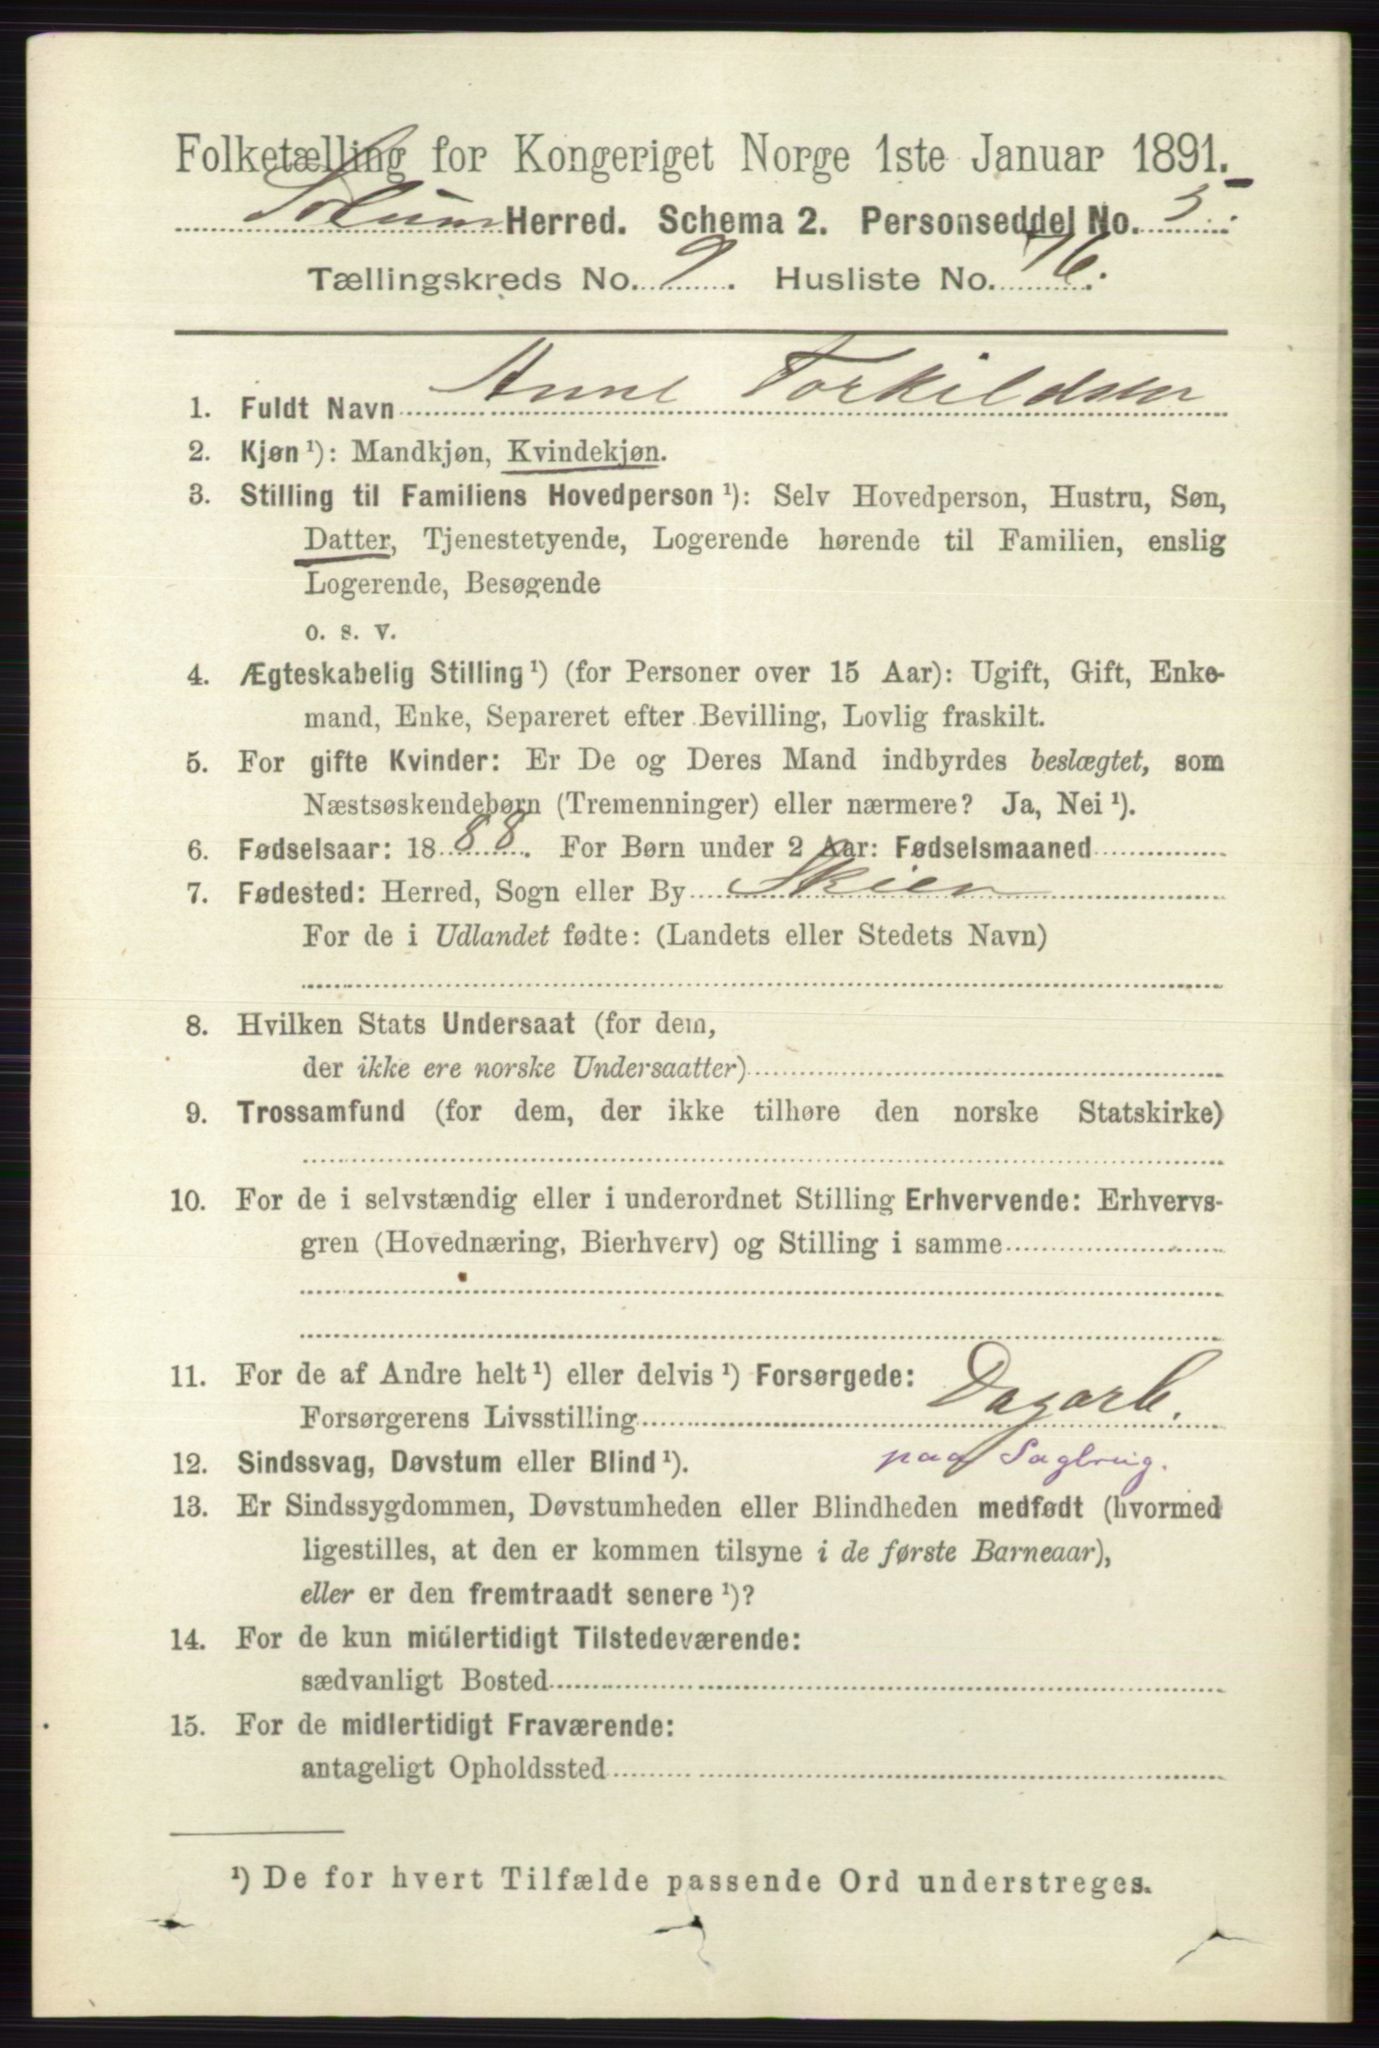 Folketælling for Kongeriget Norge 1ste Januar 1891.
Solum Herred. Schema 2. Personseddel No. 5.
Tællingskreds No. 9. Husliste No. 76.
1. Fuldt Navn Anne Torkildsen
2. Kjøn ¹): Mandkjøn, Kvindekjøn.
3. Stilling til Familiens Hovedperson ¹): Selv Hovedperson, Hustru, Søn,
Datter, Tjenestetyende, Logerende hørende til Familien, enslig
Logerende, Besøgende
o. s. v.
4. Ægteskabelig Stilling ¹) (for Personer over 15 Aar): Ugift, Gift, Enke-
mand, Enke, Separeret efter Bevilling, Lovlig fraskilt.
5. For gifte Kvinder: Er De og Deres Mand indbyrdes beslægtet, som
Næstsøskendebørn (Tremenninger) eller nærmere? Ja, Nei ¹).
6. Fødselsaar: 1888. For Børn under 2 Aar: Fødselsmaaned
7. Fødested: Herred, Sogn eller By Skien
For de i Udlandet fødte: (Landets eller Stedets Navn)
8. Hvilken Stats Undersaat (for dem,
der ikke ere norske Undersaatter)
9. Trossamfund (for dem, der ikke tilhøre den norske Statskirke)
10. For de i selvstændig eller i underordnet Stilling Erhvervende: Erhvervs-
gren (Hovednæring, Bierhverv) og Stilling i samme
11. For de af Andre helt ¹) eller delvis ¹) Forsørgede:
Forsørgerens Livsstilling Dagarb.
12. Sindssvag, Døvstum eller Blind ¹). paa Sagbrug.
13. Er Sindssygdommen, Døvstumheden eller Blindheden medfødt (hvormed
ligestilles, at den er kommen tilsyne i de første Barneaar),
eller er den fremtraadt senere ¹)?
14. For de kun midlertidigt Tilstedeværende:
sædvanligt Bosted
15. For de midlertidigt Fraværende:
antageligt Opholdssted
¹) De for hvert Tilfælde passende Ord understreges.